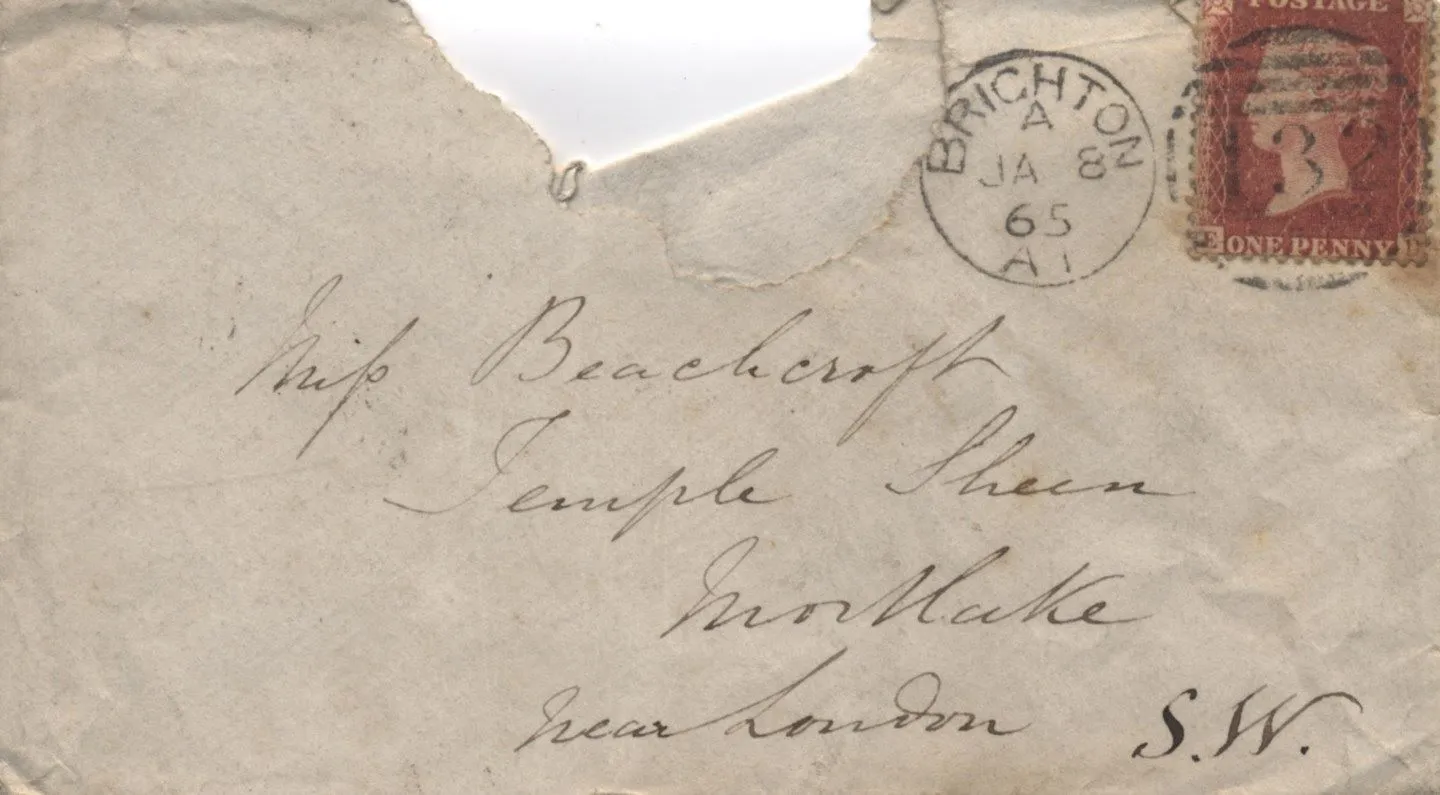 POSTAGE
BRIGHTON
A
JA 8
65
A I
132
E
ONE PENNY
Miſs Beachcroft
Temple Sheen
Mortlake
near London S.W.